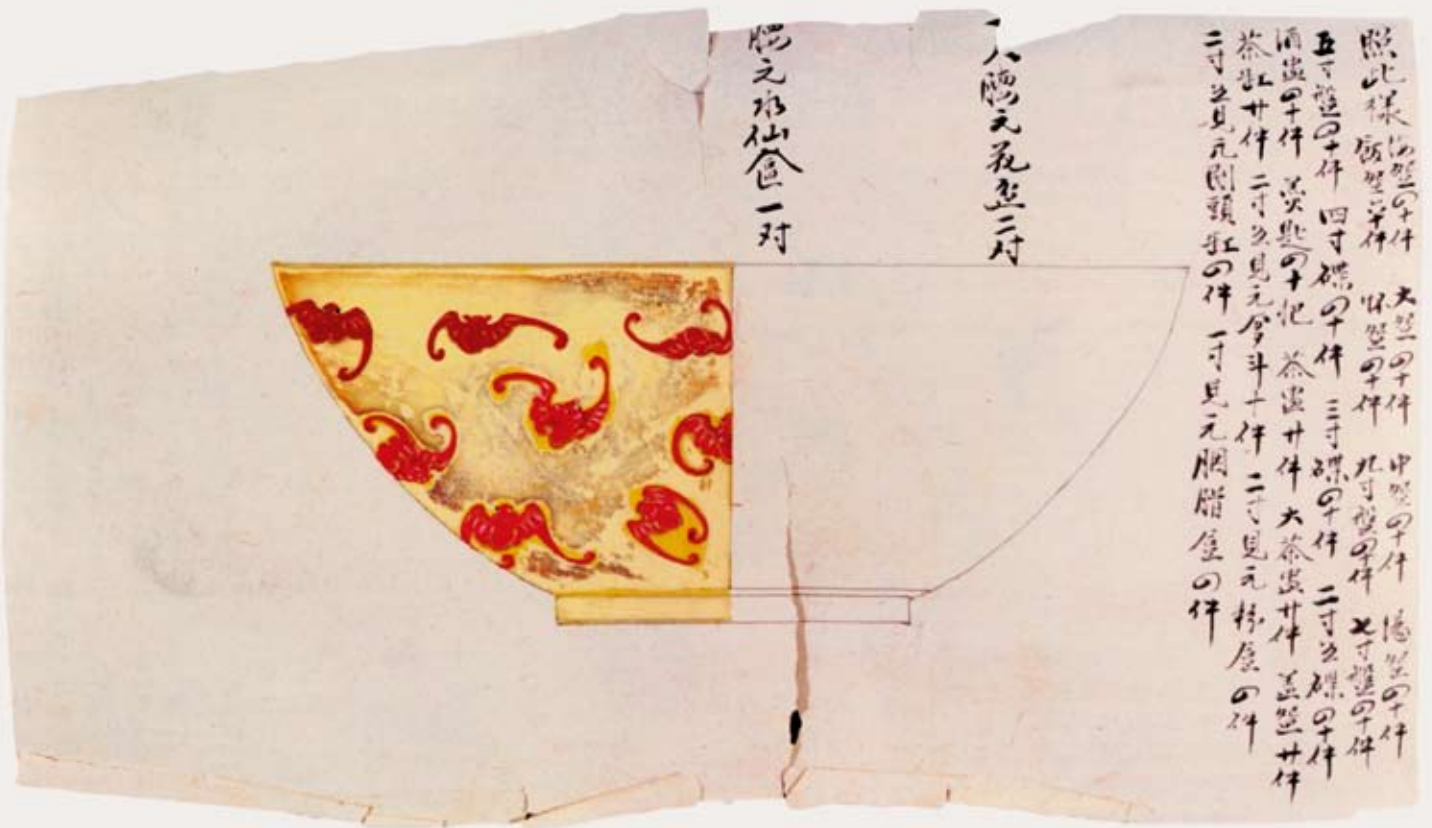 照此樣 海盌四十件 大盌四十件 中盌四十件 湯盌四十件
飯盌六十件 怀盌四十件 九寸盤四件 七寸盤四十件
五寸盤四十件 四寸碟四十件 三寸碟四十件 二寸五碟四十件
酒盅四十件 羹匙四十把 茶盅廿件 大茶盅廿件 盖盌廿件
茶缸廿件 二寸五見元 斗十件 二寸見元粉盒四件
二寸五見元 頭缸四件 一寸見元胭脂盒四件
大腰元花盆二对
腰元水仙盆一对